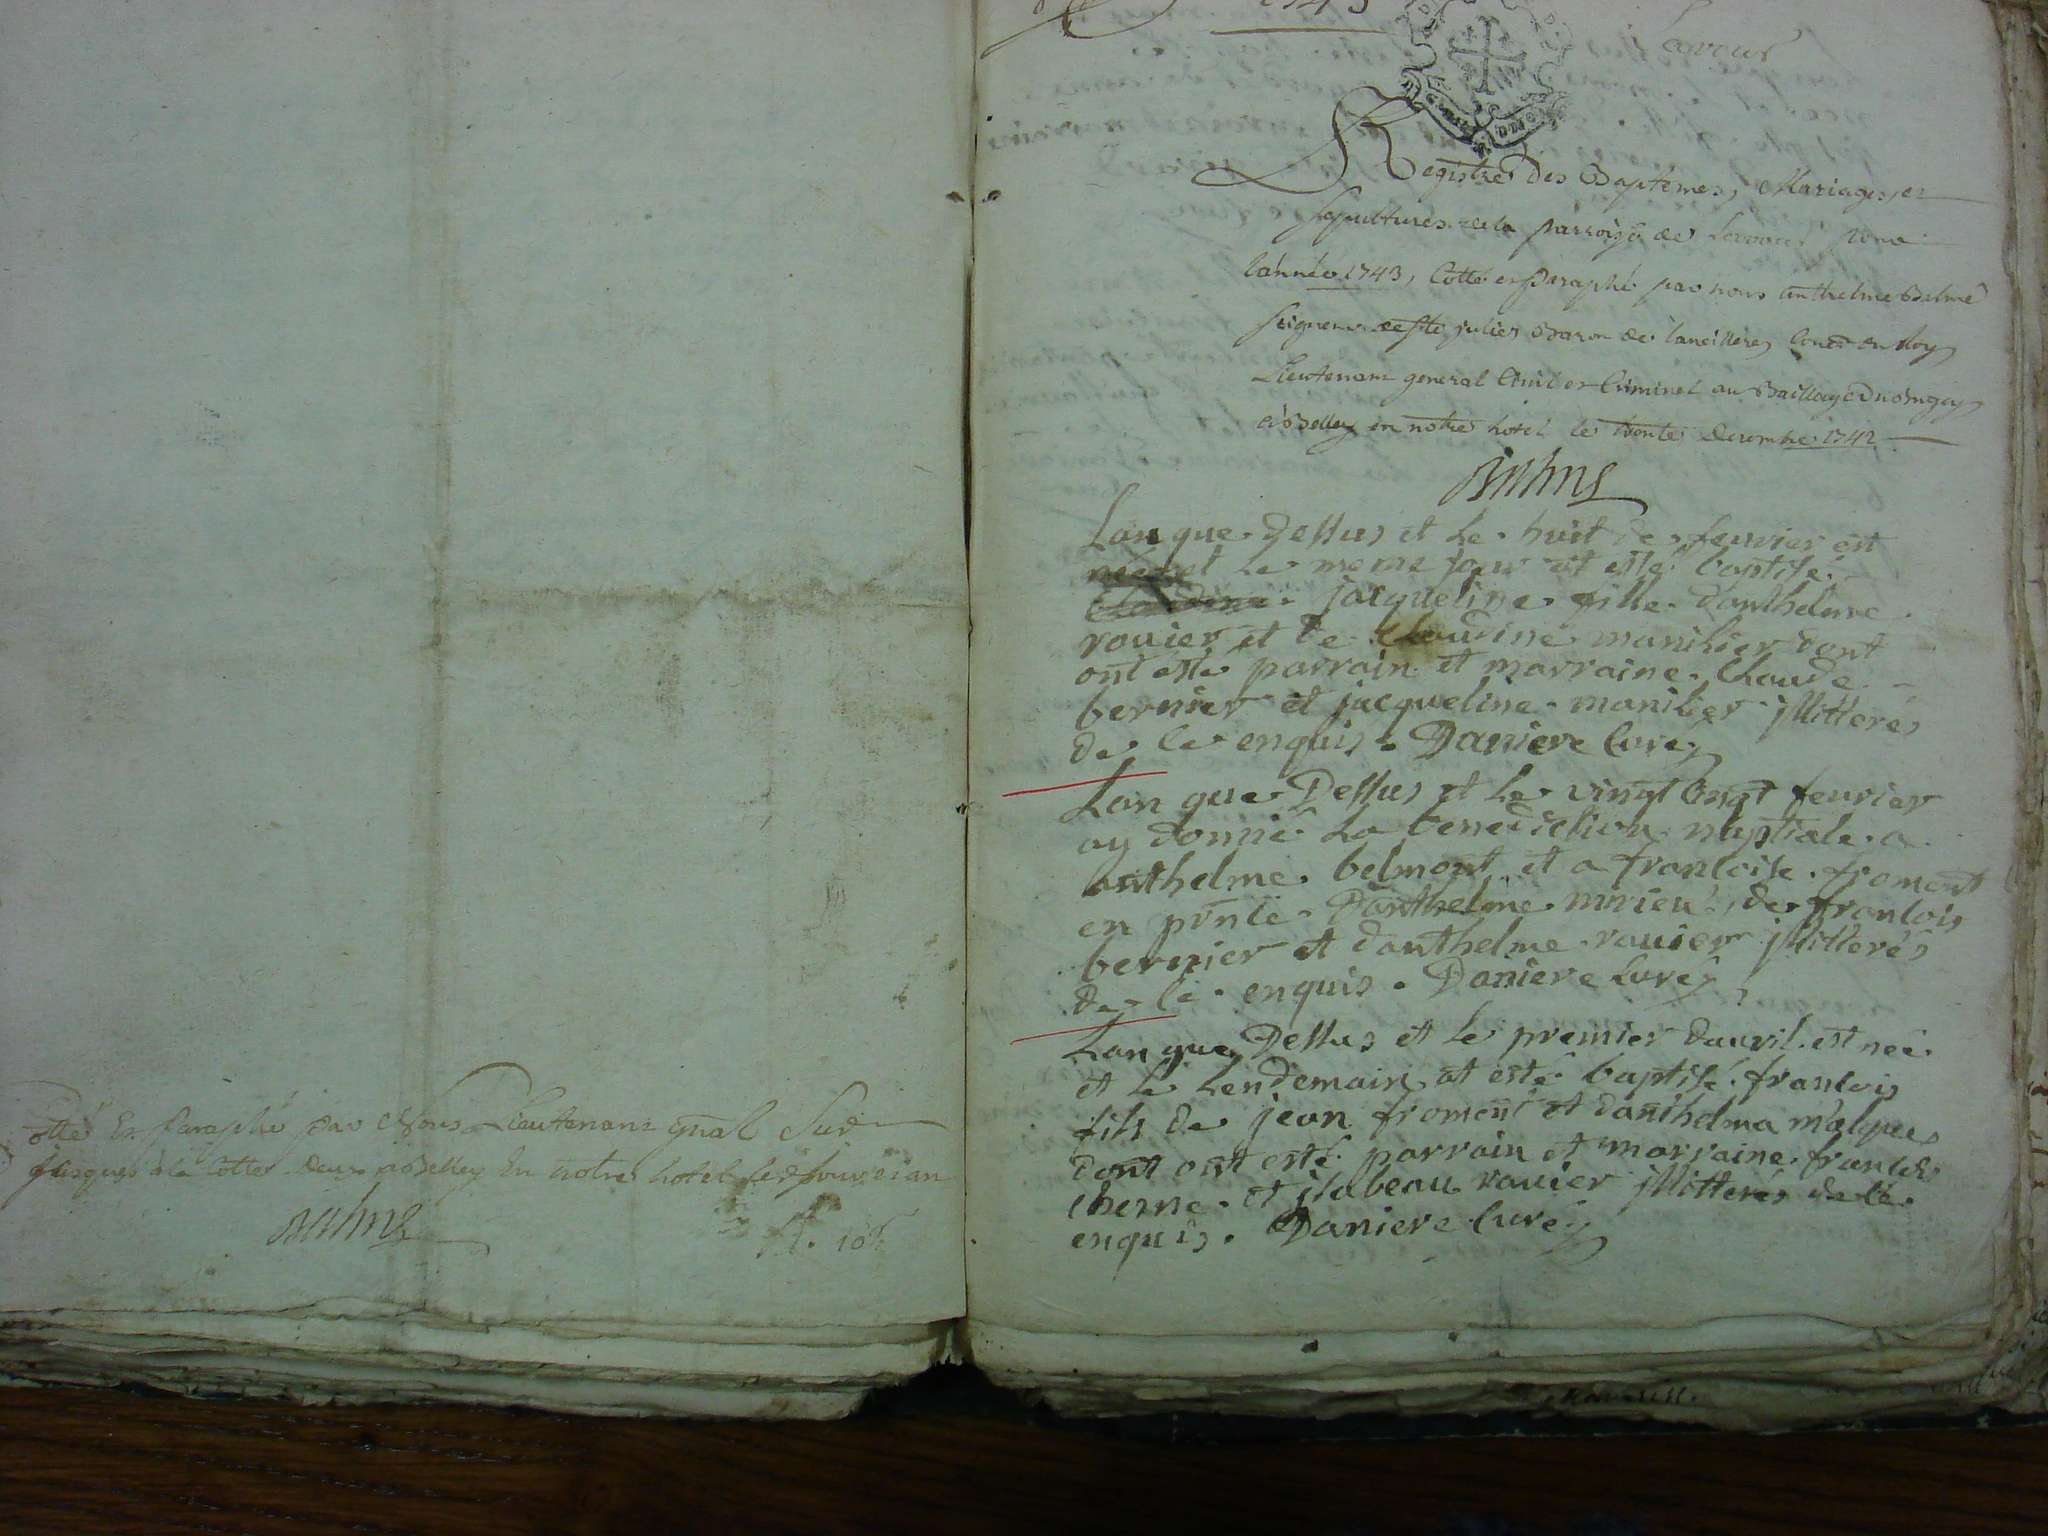 Cotté et Paraphé par Nous Lieutenant gnal Sud
jusques à la Cotte deux a Belley En notre hotel led jour et an
Balme
1743
Lavours
Registre Des Baptemes, Mariages, et
Sepultures de la parroisse de Lavours pour
l'année 1743, Cotté et Paraphé par nous Anthelme Balme
Seigneur de Ste julie, Baron de Conser du Roy
Lieutenant general Civil et Criminel au Baillage Du Bugey
à Belley en notre hotel le trente Decembre 1742
Balme
Lan que Dessus et Le huit de feuvier est
née et Le meme jour at esté baptisé
Claudine jacqueline fille d'anthelme
rouier et de Claudine manihier dont
ont esté parrain et marraine Claude
bernier et jacqueline manihier jllitterés
de ce enquis. Daniere Curé
Lan que Dessus et Le vingt cinqt feurier
ay donné La benediction nuptiale a
anthelme belmont et a francoise froment
en pnce Danthelme de francois
bernier et danthelme rauier jllitterés
de cé enquis. Daniere Curé
Lan que Dessus et Le premier dauril est neé
et le Lendemain at esté baptisé francois
fils de jean froment et danthelma
dont ont esté parrain et marraine francois
cherne et jsabeau rauier jllitterés de cé
enquis. Daniere Curé